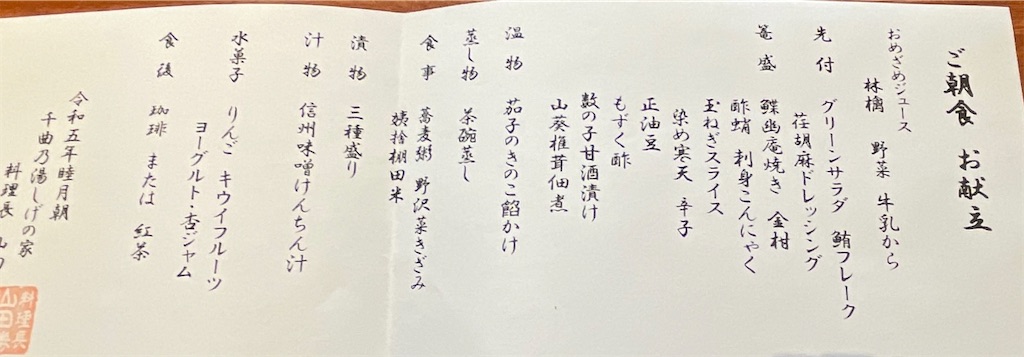 ご朝食 お献立
おめざめジュース
林檎 野菜 牛乳から
先付 グリーンサラダ 鮪フレーク
荏胡麻ドレッシング
篭盛 鰈幽庵焼き 金柑
酢蛸 刺身こんにゃく
玉ねぎスライス
染め寒天 辛子
正油豆
もずく酢
数の子甘酒漬け
山葵椎茸佃煮
温物 茄子のきのこ餡かけ
蒸し物 茶碗蒸し
食事 蕎麦粥 野沢菜きざみ
姨捨棚田米
漬物 三種盛り
汁物 信州味噌けんちん汁
水菓子 りんご キウイフルーツ
ヨーグルト・杏ジャム
食後 珈琲 または 紅茶
令和五年睦月朝
千曲乃湯しげの家
料理長 山
料理長
山田